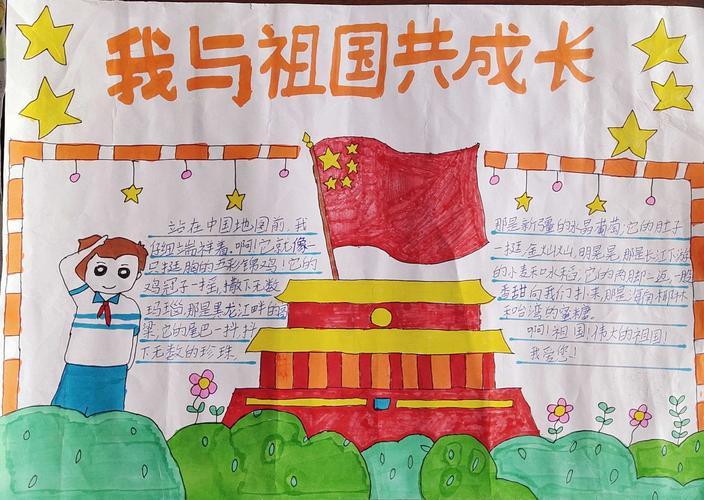 我与祖国共成长
站在中国地图前，我
仔细端祥着。啊！它就像一
只挺胸的五彩锦鸡！它的
鸡冠子一摇，撒下无数
玛瑙，那是黑龙江畔的高
梁；它的尾巴一抖，抖
下无数的珍珠
那是新疆的水晶葡萄；它的肚子
一挺，金灿灿，明晃晃，那是长江下游
的小麦和水稻；它的两脚一迈，一股
香甜向我们扑来，那是海南椰林
和哈
的蜜糖。
啊！祖国，伟大的祖国！
我爱您！